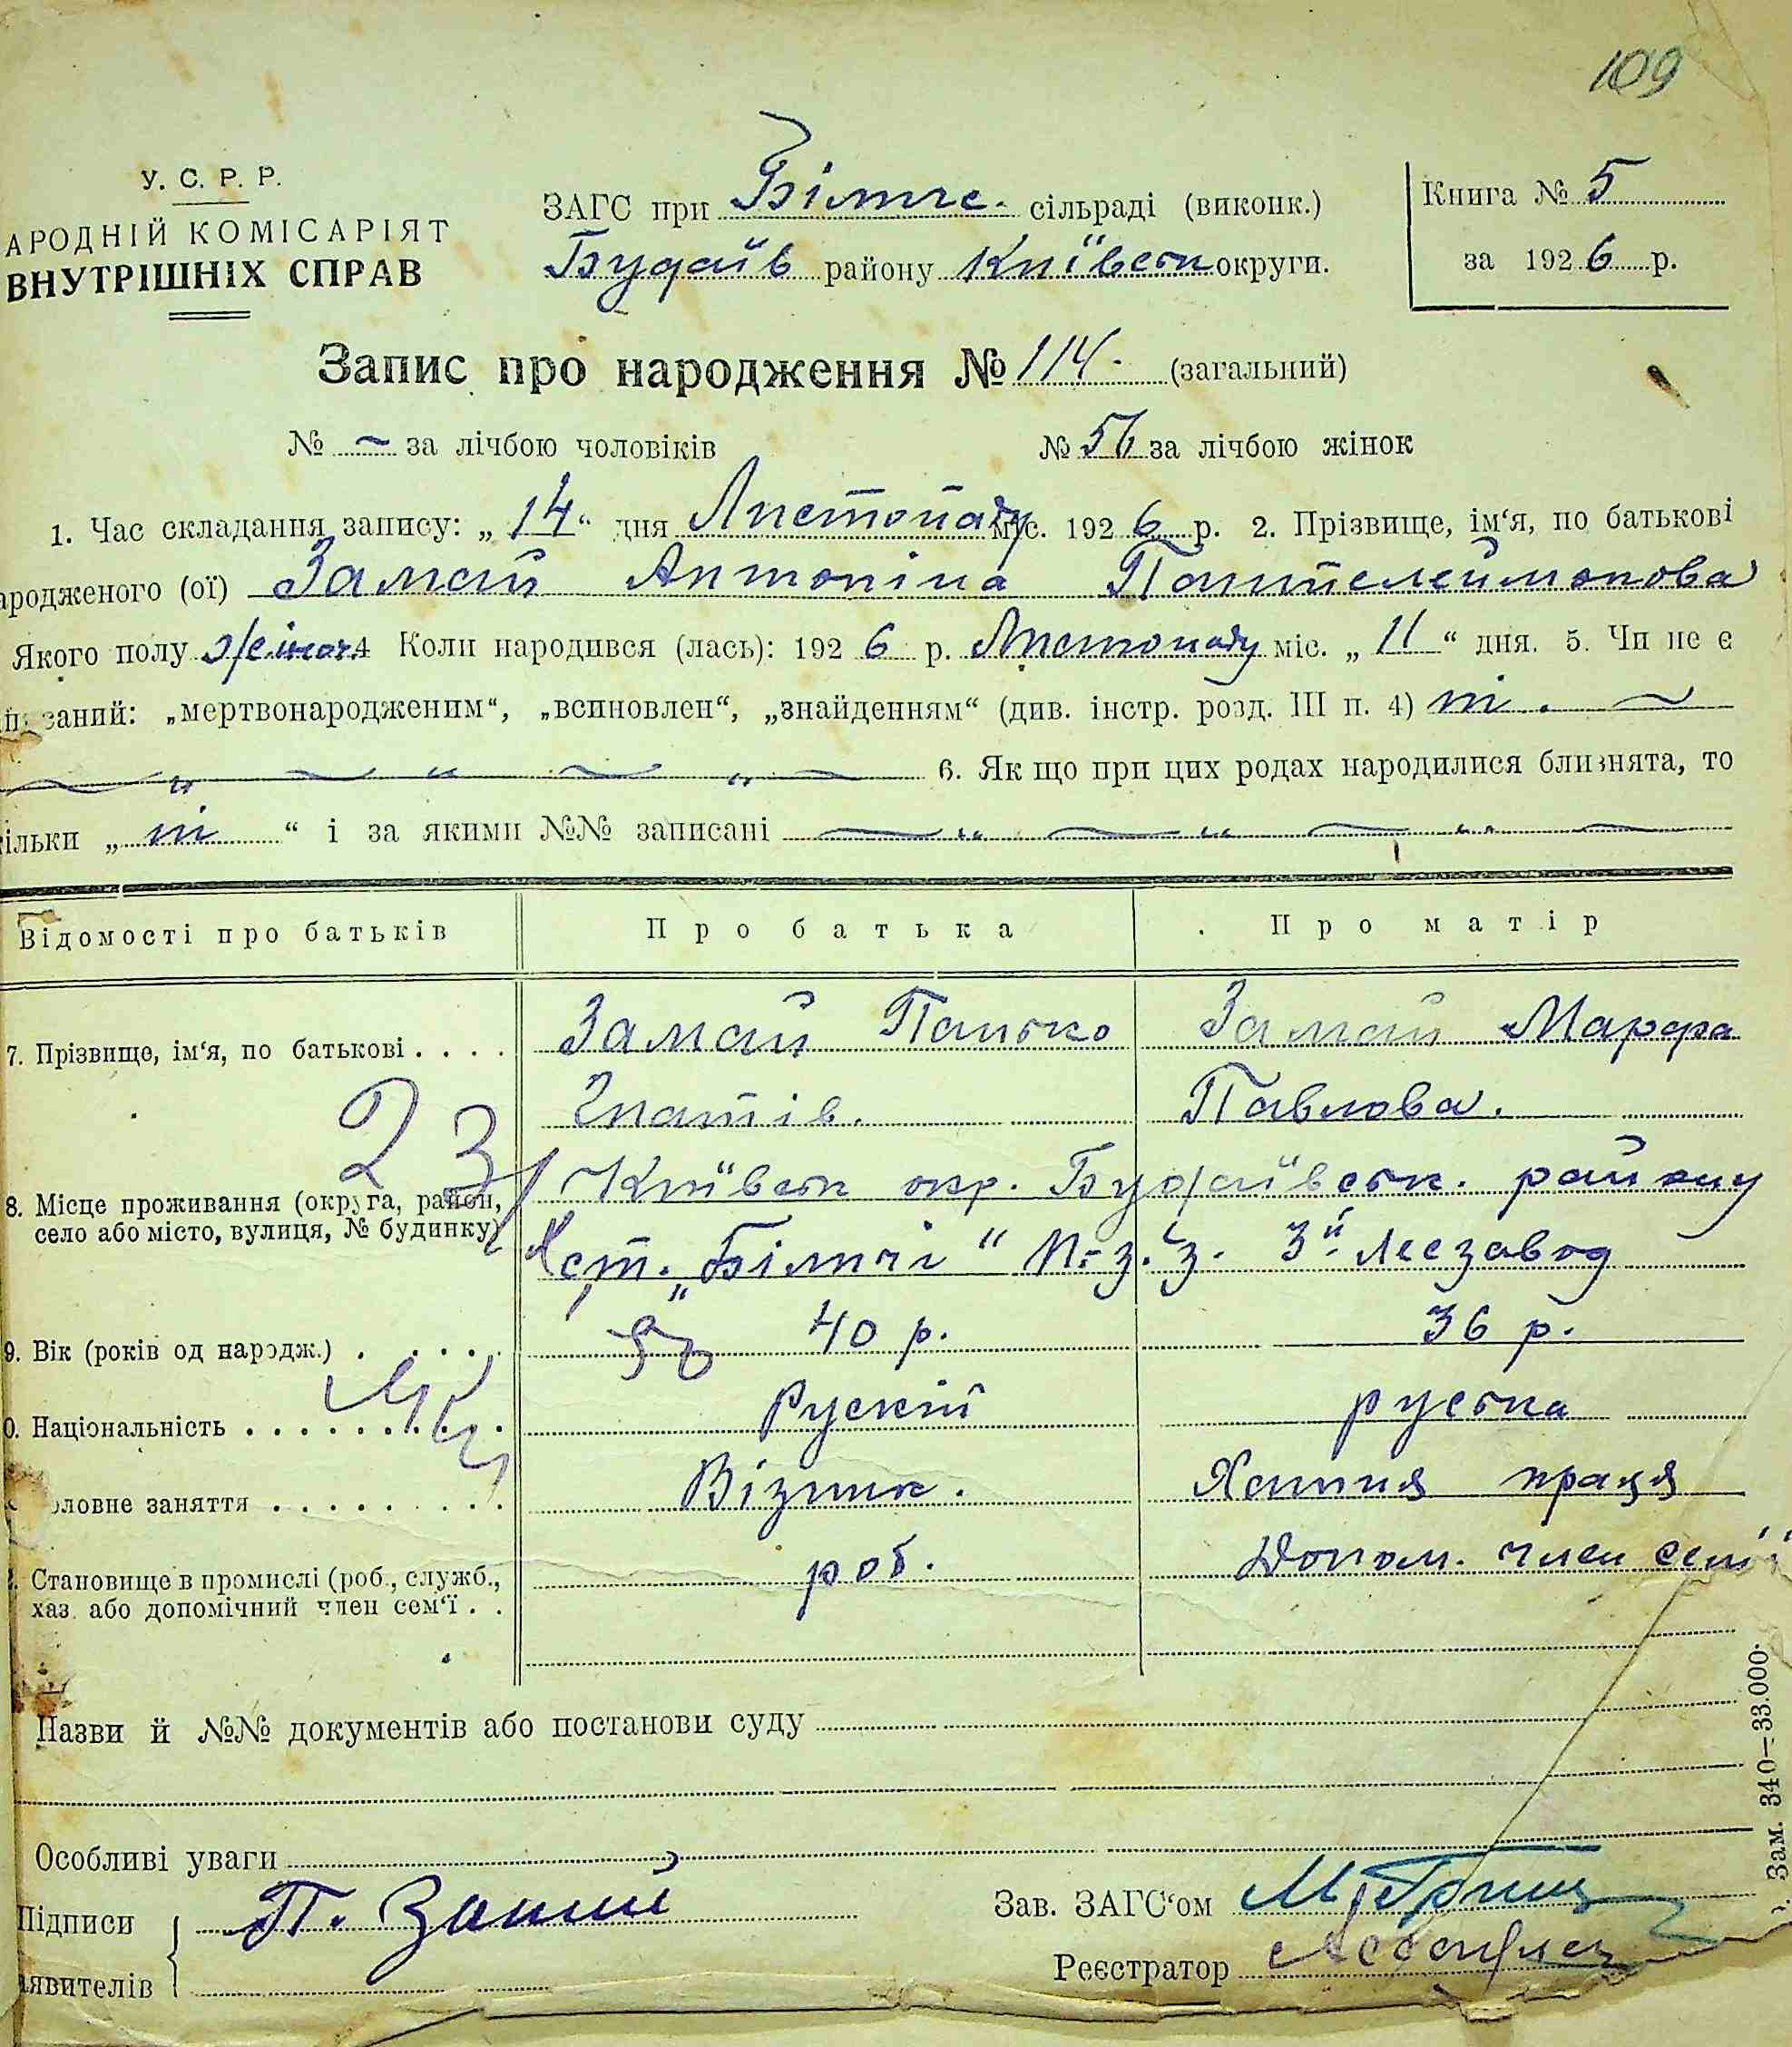 109
У. С. Р. Р.
АРОДНІЙ КОМІСАРІЯТ
ВНУТРІШНІХ СПРАВ
ЗАГС при Біличе. сільраді (виконк.)
Будаїв району Київськ округи.
Книга № 5
за 1926 р.
Запис про народження № 114. (загальний)
№ ~ за лічбою чоловіків № 56 за лічбою жінок
1. Час складання запису: „14“ дня Листопаду міс. 1926 р. 2. Прізвище, ім‘я, по батькові
ародженого (ої) Замай Антоніна Пантелеймонова
Якого полу жіноч. 4 Коли народився (лась): 1926 р. Листопаду міс. „11“ дня. 5. Чи не є
заний: „мертвонародженим“, „всиновлен“, „знайденням“ (див. інстр. розд. III п. 4) ні. ~
~ „ ~ “ ~ „ ~ 6. Як що при цих родах народилися близнята, то
ільки „ні“ і за якими №№ записані ~ “ ~ “ ~ “ ~
Відомості про батьків Про батька Про матір
7. Прізвище, ім‘я, по батькові . . . . Замай Панько Замай Марфа
Гнатів. Павлова.
23
8. Місце проживання (округа, район, Київськ окр. Будаївськ. району
село або місто, вулиця, № будинку) ст. „Біличі“ П.-З. з. 3й Лесзавод
9. Вік (років од народж.) . . . . . 40 р. 36 р.
0. Національність . . . . . . . . . . Рускій руська
ловне заняття . . . . . . . . . Візник. Хатня праця
Становище в промислі (роб., служб., роб. Допом. член семʼї
хаз. або допомічний член сем‘ї . .
Назви й №№ документів або постанови суду
Особливі уваги
Підписи П. Замий
явителів
Зав. ЗАГС‘ом
Реєстратор
Зам. 340—33.000.